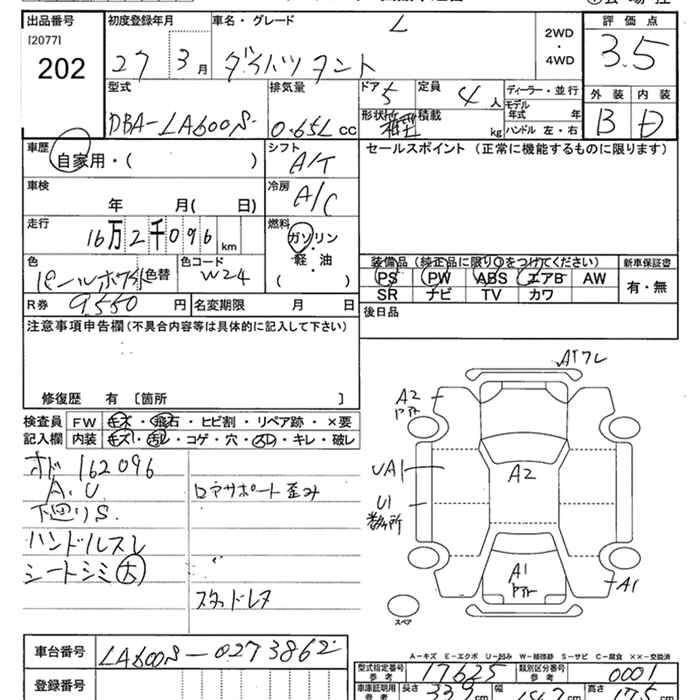 出品番号
[2077]
202
初度登録年月
27 3月
車名・グレード
L
ダイハツ タント
2WD
・
4WD
評価点
3.5
外装 内装
B D
型式
DBA-LA600S
排気量
0.65L cc
ドア
5
定員
4人
形状
箱型
積載
kg
ディーラー・並行
モデル年式 年
ハンドル 左・右
車歴
自家用・( )
シフト
A/T
セールスポイント (正常に機能するものに限ります)
車検
年 月( 日)
冷房
A/C
走行
16万2千096km
燃料
ガソリン
・
軽・油
( )
色
パールホワイト
色替
色コード
W24
装備品 (純正品に限り○をつけてください)
新車保証書
PS PW ABS エアB AW
SR ナビ TV カワ
有・無
R券 9,550円
名変期限 月 日
後日品
注意事項申告欄 (不具合内容等は具体的に記入して下さい)
修復歴 有 [箇所 ]
検査員記入欄
FW キズ・飛石・ヒビ割・リペア跡・×要
内装 キズ・汚レ・コゲ・穴・スレ・キレ・破レ
オド162096
A.U
ロアサポート歪み
下廻りS
ハンドルスレ
シートシミ(大)
スタッドレス
ATフレ
A2
UA1
A2
U1
A1
A1
スペア
車台番号
LA600S-0273862
登録番号
A-キズ E-エクボ U-凹み W-補修跡 S-サビ C-腐食 ××-交換済
型式指定番号
参考
17625
類別区分番号
参考
0001
車庫証明用
参考
長さ
339cm
幅
147cm
高さ
175cm